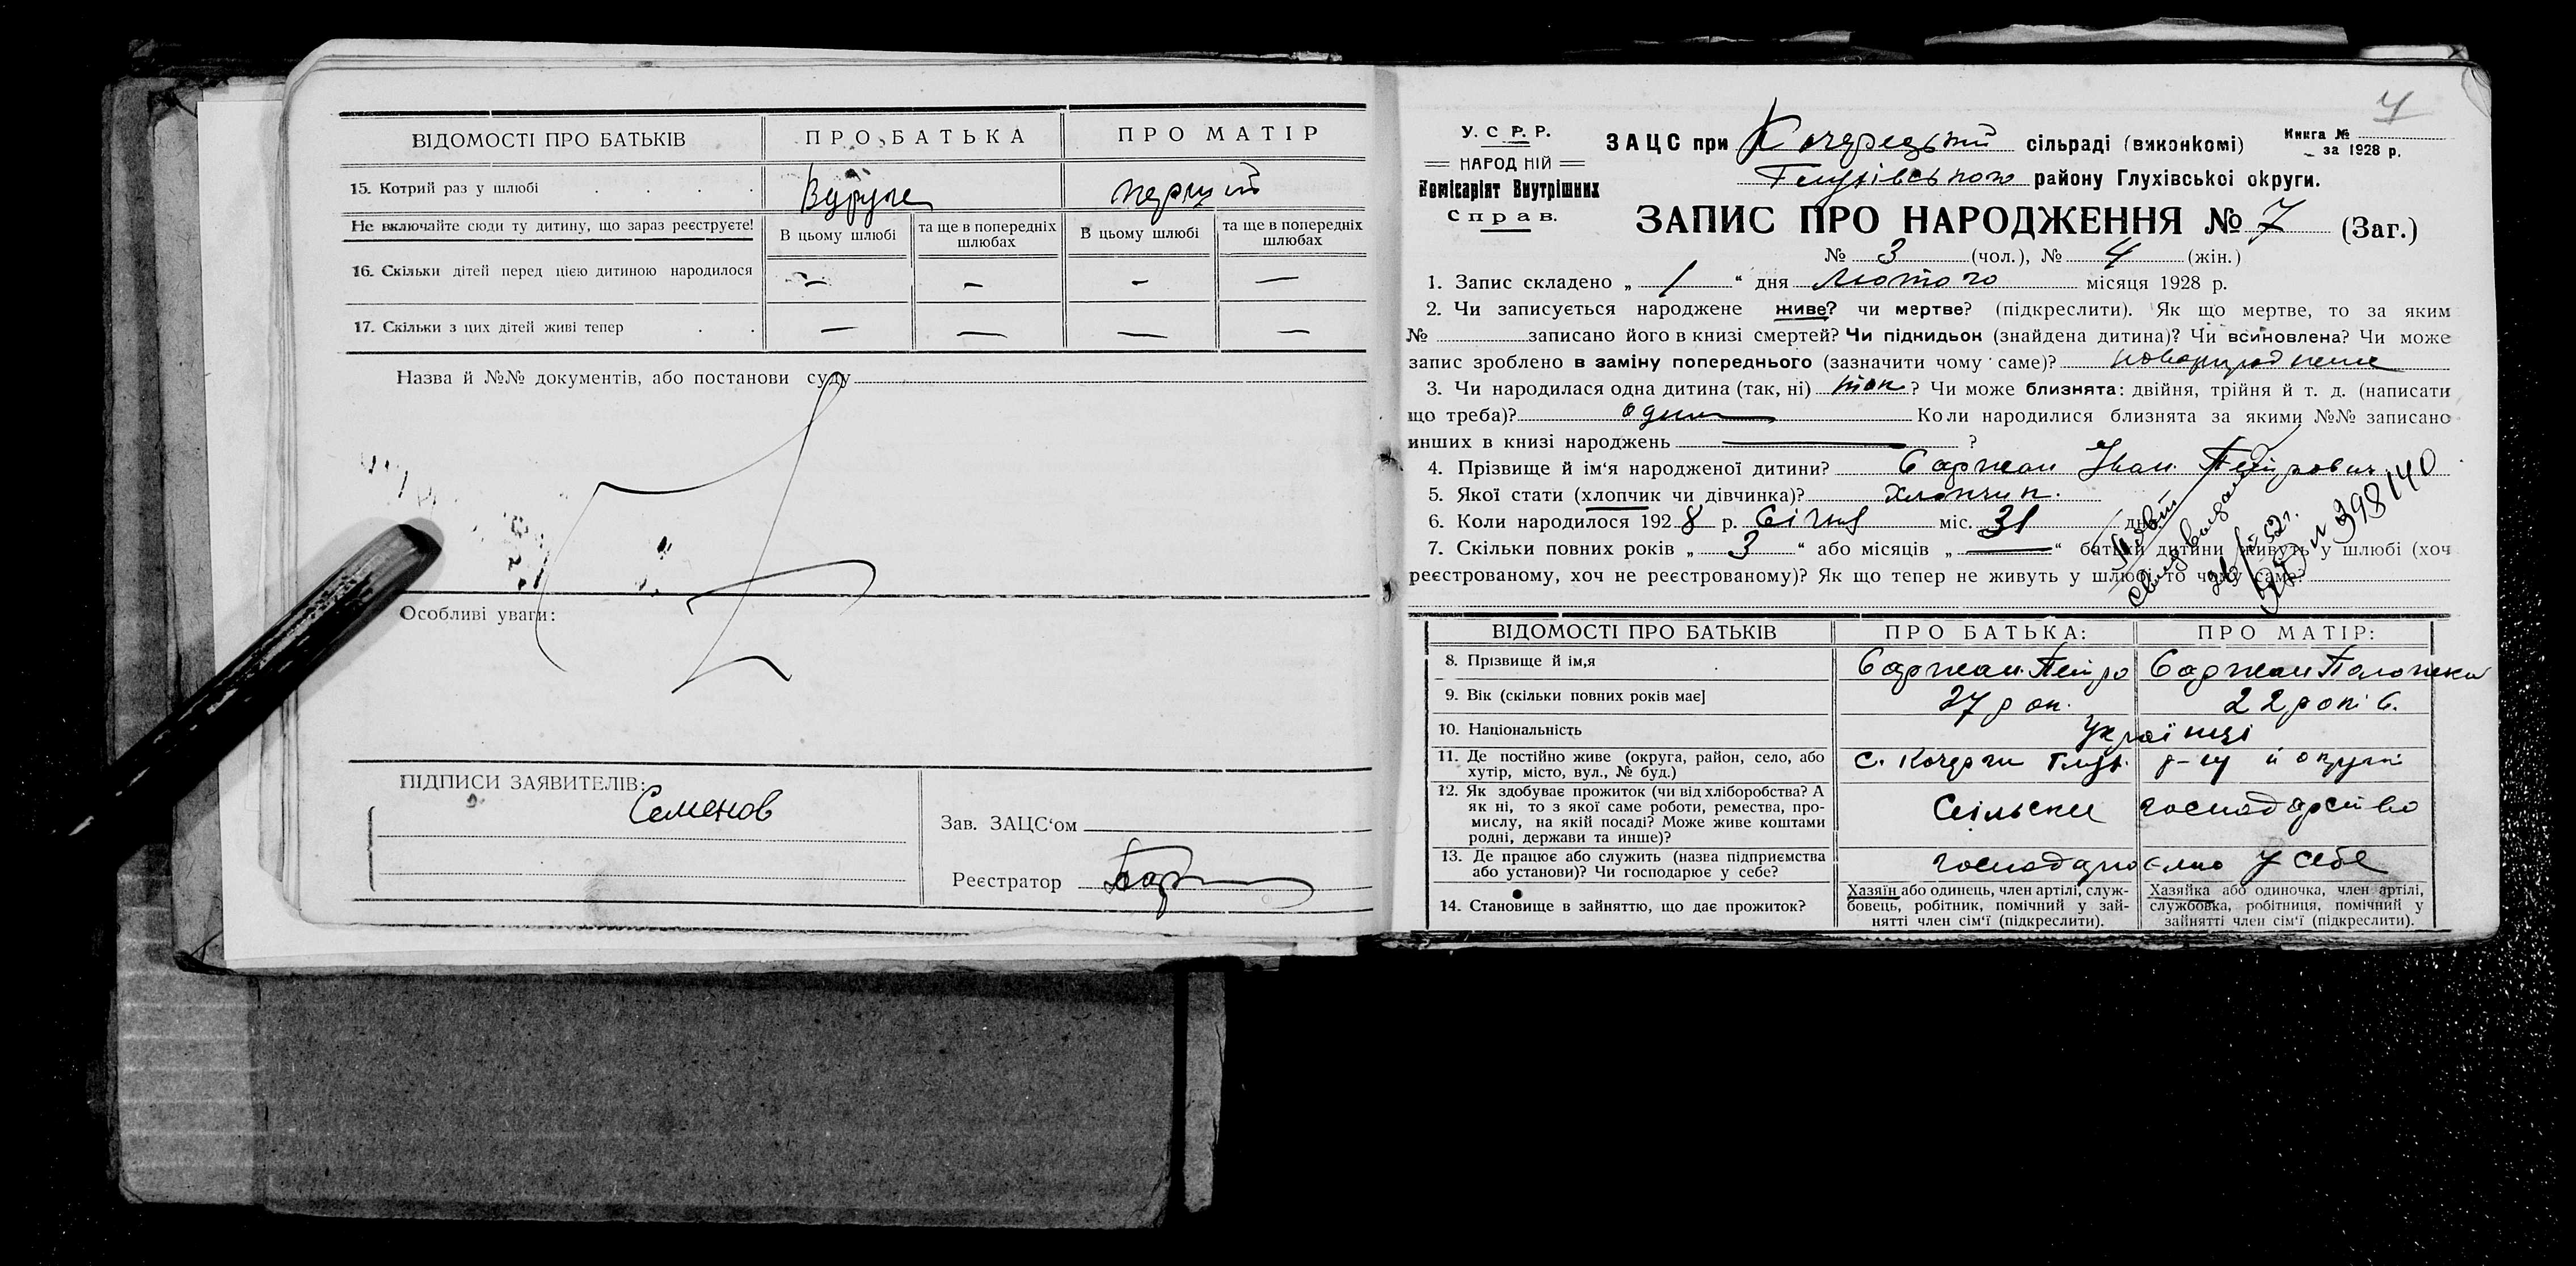 ВІДОМОСТІ ПРО БАТЬКІВ
ПРО БАТЬКА
ПРО МАТІР
15. Котрий раз у шлюбі
Вдруге
перший
Не включайте сюди ту дитину, що зараз реєструєте!
В цьому шлюбі
та ще в попередніх шлюбах
В цьому шлюбі
та ще в попередніх шлюбах
16. Скільки дітей перед цією дитиною народилося
— — — —
17. Скільки з цих дітей живі тепер
— — — —
Назва й №№ документів, або постанови суду
Особливі уваги:
ПІДПИСИ ЗАЯВИТЕЛІВ:
Семенов
Зав. ЗАЦС'ом
Реєстратор
4
У. С. Р. Р.
НАРОДНІЙ
Комісаріят Внутрішних
Справ.
ЗАЦС при сільраді (виконкомі)
Книга №
за 1928 р.
Глухівського району Глухівської округи.
ЗАПИС ПРО НАРОДЖЕННЯ № 7 (Заг.)
№ 3 (чол.), № 4 (жін.)
1. Запис складено „ 1 “ дня Лютого місяця 1928 р.
2. Чи записується народжене живе? чи мертве? (підкреслити). Як що мертве, то за яким
№ записано його в книзі смертей? Чи піднидьок (знайдена дитина)? Чи всиновлена? Чи може
запис зроблено в заміну попереднього (зазначити чому саме)?
3. Чи народилася одна дитина (так, ні) так? Чи може близнята: двійня, трійня й т. д. (написати
що треба)? один Коли народилися близнята за якими №№ записано
инших в книзі народжень — ?
4. Прізвище й ім'я народженої дитини? Саржан Іван Петрович
5. Якої стати (хлопчик чи дівчинка)? Хлопчик.
6. Коли народилося 1928 р. Січня міс. 31 дня
7. Скільки повних років „ 3 “ або місяців „ — “ батьки дитини живуть у шлюбі (хоч
реєстрованому, хоч не реєстрованому)? Як що тепер не живуть у шлюбі, то чому саме?
№ 398140
ВІДОМОСТІ ПРО БАТЬКІВ
ПРО БАТЬКА:
ПРО МАТІР:
8. Прізвище й ім,я
Саржан Петро
Саржан Палажка
9. Вік (скільки повних років має]
27 рок.
22 років.
10. Національність
Українці
11. Де постійно живе (округа, район, село, або
хутір, місто, вул., № буд.)
с. Кочерги Глух. р-ну й округи
12. Як здобуває прожиток (чи від хліборобства? А
як ні, то з якої саме роботи, ремества, про-
мислу, на якій посаді? Може живе коштами
родні, держави та инше)?
Сільське господарство
13. Де працює або служить (назва підприємства
або установи)? Чи господарює у себе?
у себе
14. Становище в зайняттю, що дає прожиток?
Хазяїн або одинець, член артілі, служ-
бовець, робітник, помічний у зай-
нятті член сім'ї (підкреслити).
Хазяйка або одиночка, член артілі,
службовка, робітниця, помічний у
зайнятті член сім'ї (підкреслити).